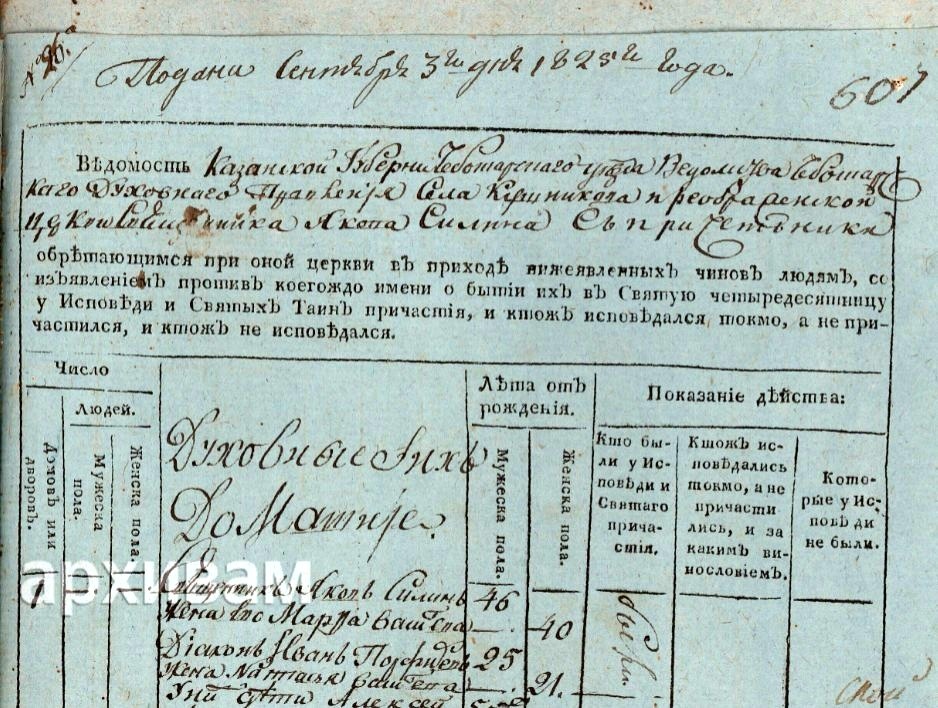 № 26.
Подана Сентѣбрѣ 3го дня 1825го года.
607
Вѣдомость Казанской Губерни Чеботарскаго уезда Ведомства Чеботар
скаго Духовнаго Правления Села преображенской
Церкви Священника Якова Силина Съ причетники
обрѣтающимся при оной церкви въ приходѣ нижеявленныхъ чиновъ людямъ, со
изъявленіемъ противъ коегождо имени о бытіи ихъ въ Святую четыредесятницу
у Исповѣди и Святыхъ Таинъ причастія, и ктожъ исповѣдался токмо, а не при-
частился, и ктожъ не исповѣдался.
Число
Людей.
Домовъ или дворовъ.
Мужеска пола.
Женска пола.
Духовные ихъ
Домашніе.
Лѣта отъ
рожденія.
Мужеска пола.
Женска пола.
Показаніе дѣйства:
Кто бы-
ли у Ис-
повѣди и
Святаго
прича-
стія.
Ктожъ ис-
повѣдались
токмо, а не
причасти-
лись, и за
какимъ ви-
нословіемъ.
Кото-
рые у Ис-
повѣди
не были.
архивам
1 Священникъ Яковъ Силинъ 46
Жена его Марѳа 40
Діаконъ Иванъ 25
Жена Наталья 21.
дѣти Алексей
были